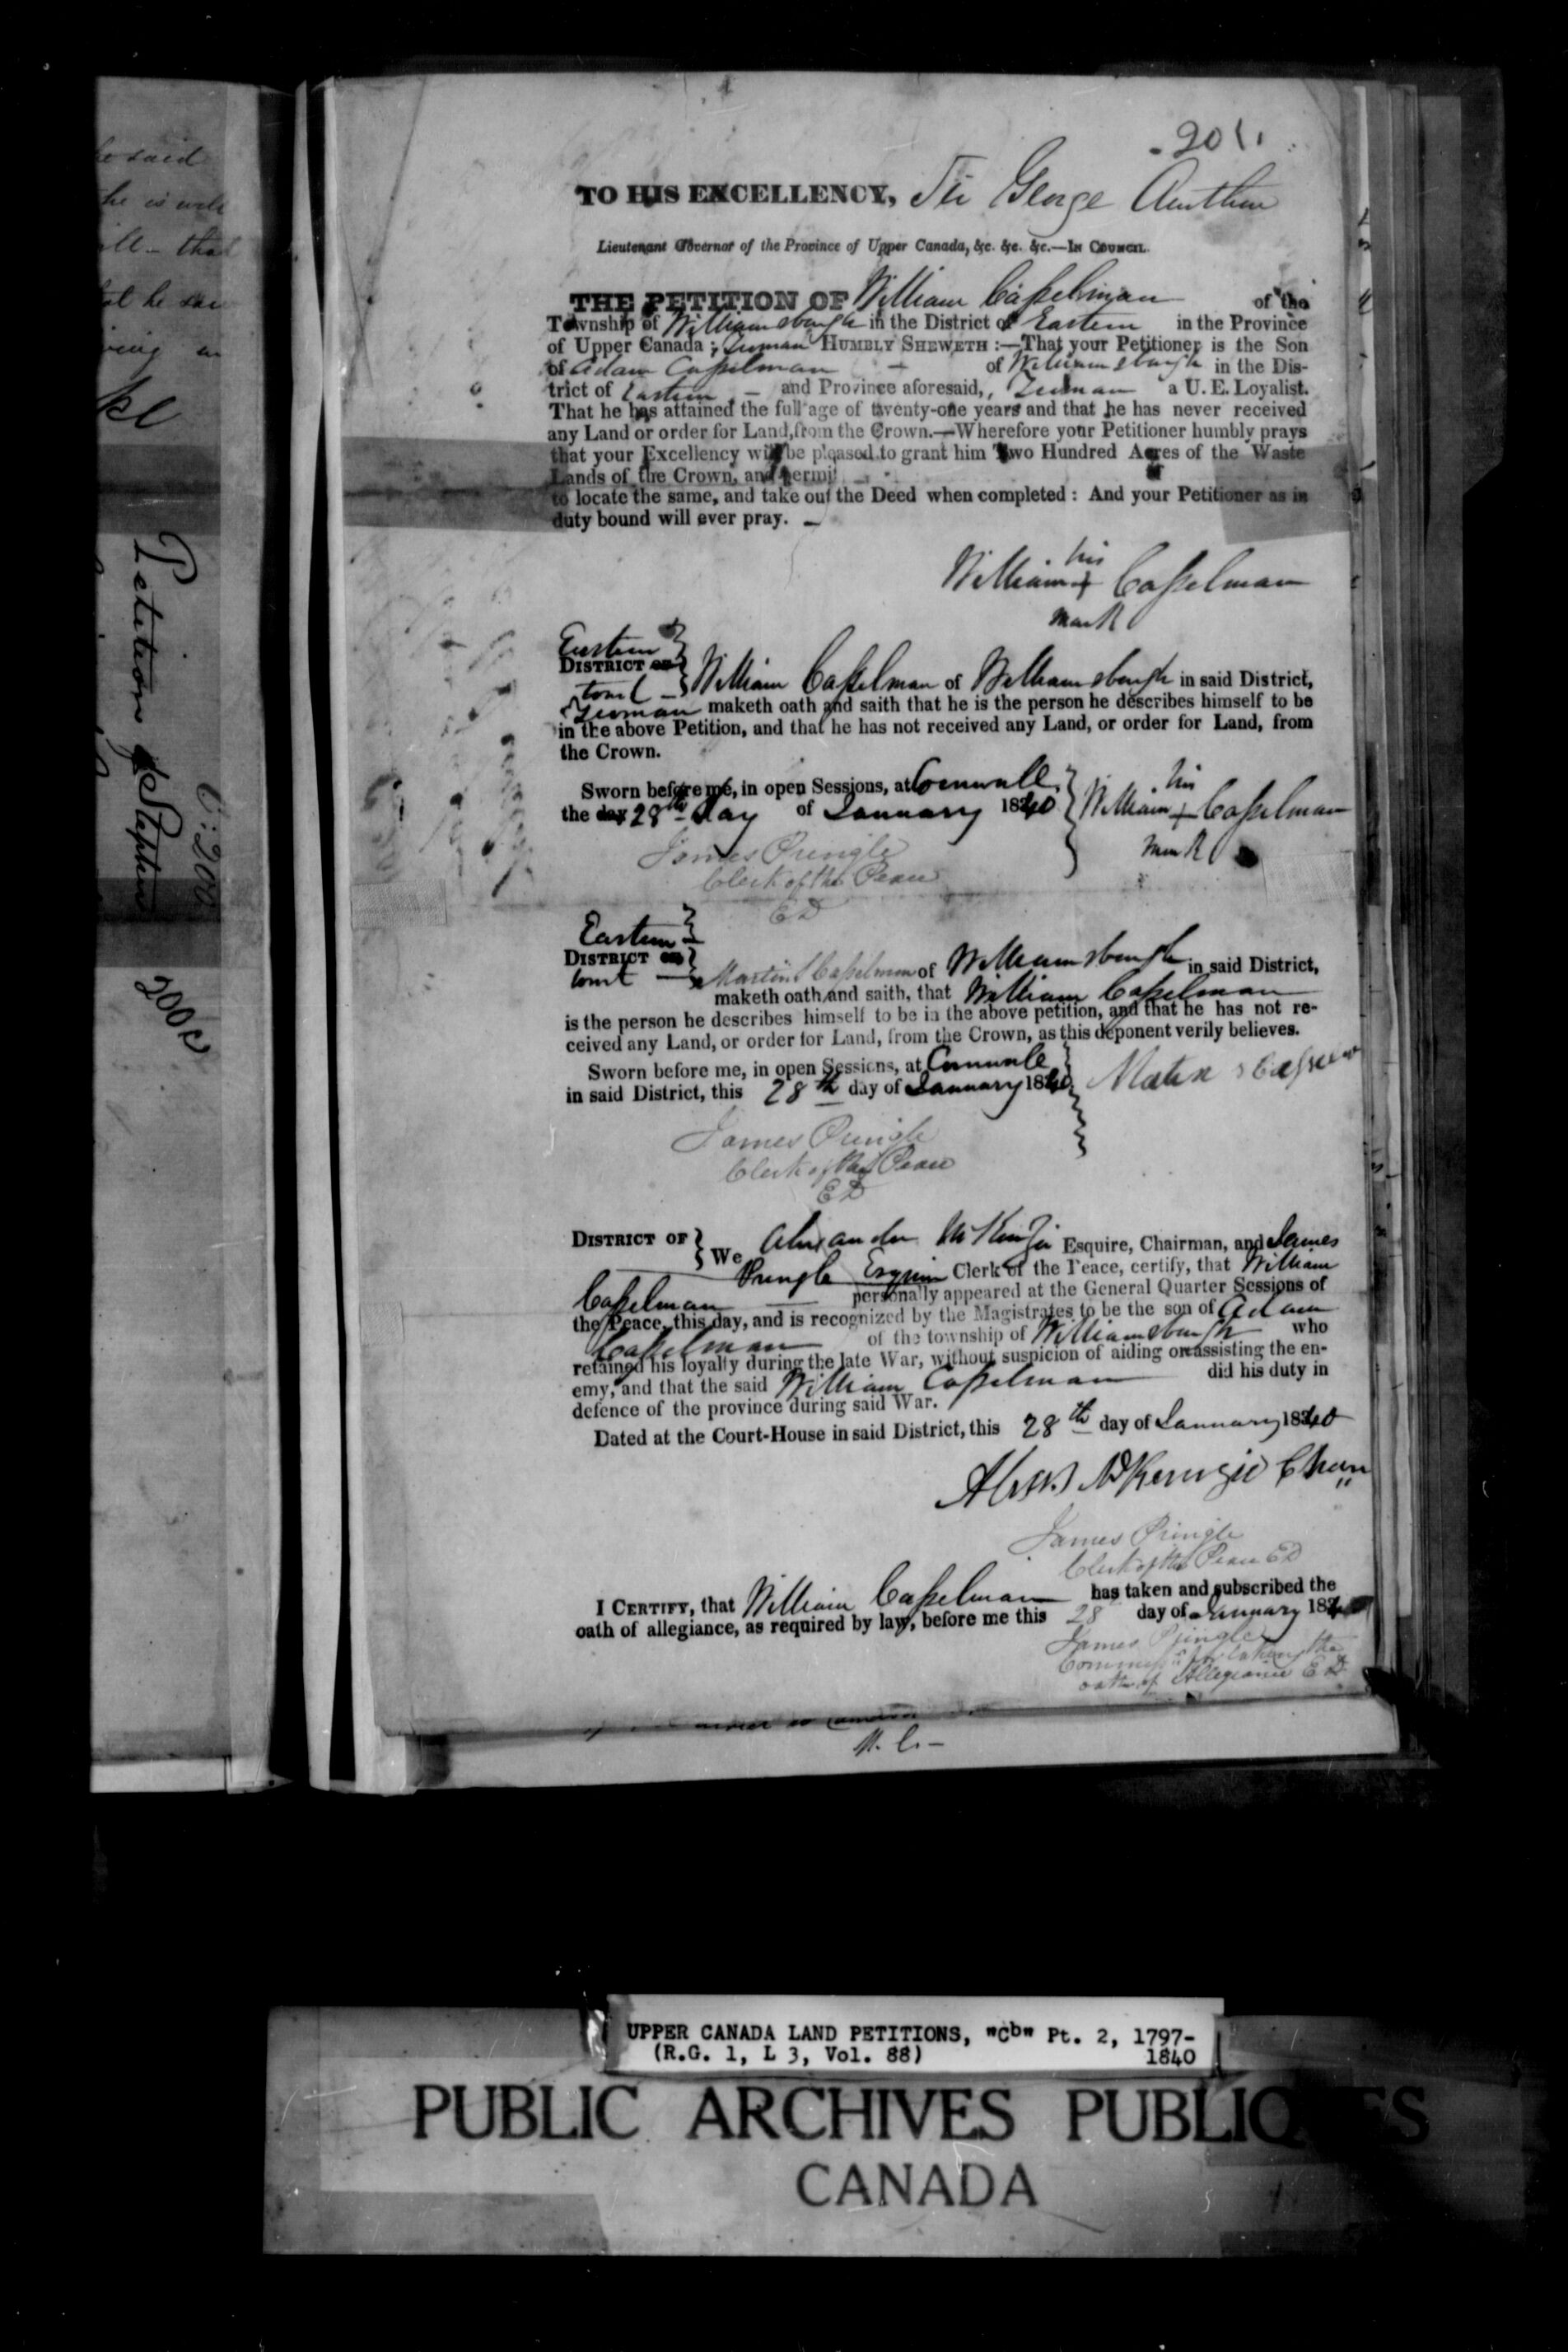 he said
he is well
ill - that
Petition of Stephen
C:200
200c
- 20
TO HIS EXCELLENCY, Sir George Arthur
Lieutenant Governor of the Province of Upper Canada, &c. &c. &c.—IN COUNCIL.
THE PETITION OF William Casselman of the
Township of Williamsburgh in the District of Eastern in the Province
of Upper Canada; Yeoman HUMBLY SHEWETH:—That your Petitioner is the Son
of Adam Casselman - of Williamsburgh in the Dis-
trict of Eastern, - and Province aforesaid, Yeoman a U. E. Loyalist.
That he has attained the full age of twenty-one years and that he has never received
any Land or order for Land, from the Crown.—Wherefore your Petitioner humbly prays
that your Excellency will be pleased to grant him Two Hundred Acres of the Waste
Lands of the Crown, and permit
to locate the same, and take out the Deed when completed: And your Petitioner as in
duty bound will ever pray. -
his
William + Casselman
mark
Eastern
DISTRICT OF
to wit - William Casselman of Williamsburgh in said District,
Yeoman maketh oath and saith that he is the person he describes himself to be
in the above Petition, and that he has not received any Land, or order for Land, from
the Crown.
Sworn before me, in open Sessions, at Cornwall his
the day 28th day of January 1840 William + Casselman
mark
James Pringle
Clerk of the Peace
ED
Eastern
DISTRICT OF
to wit - Martin Casselman of Williamsburgh in said District,
maketh oath and saith, that William Casselman
is the person he describes himself to be in the above petition, and that he has not re-
ceived any Land, or order for Land, from the Crown, as this deponent verily believes.
Sworn before me, in open Sessions, at Cornwall
in said District, this 28th day of January 1840
James Pringle
Clerk of the Peace
ED
DISTRICT OF We Alexander McKenzie Esquire, Chairman, and James
Pringle Esquire Clerk of the Peace, certify, that William
Casselman personally appeared at the General Quarter Sessions of
the Peace, this day, and is recognized by the Magistrates to be the son of Adam
Casselman of the township of Williamsburgh who
retained his loyalty during the late War, without suspicion of aiding or assisting the en-
emy, and that the said William Casselman did his duty in
defence of the province during said War.
Dated at the Court-House in said District, this 28th day of January 1840
Alexr McKenzie Chan
James Pringle
Clerk of the Peace ED
I CERTIFY, that William Casselman has taken and subscribed the
oath of allegiance, as required by law, before me this 28 day of January 184
James Pringle
Commissr for taking the
oath of Allegiance E D
UPPER CANADA LAND PETITIONS, "Cb" Pt. 2, 1797-
(R.G. 1, L 3, Vol. 88) 1840
PUBLIC ARCHIVES PUBLIQUES
CANADA